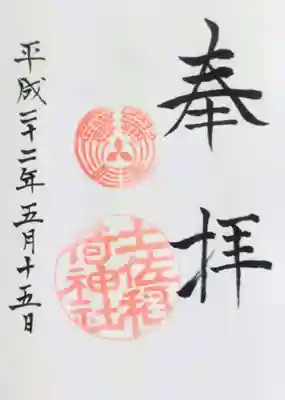 奉拝
土佐稲荷神社
平成二十二年五月十五日